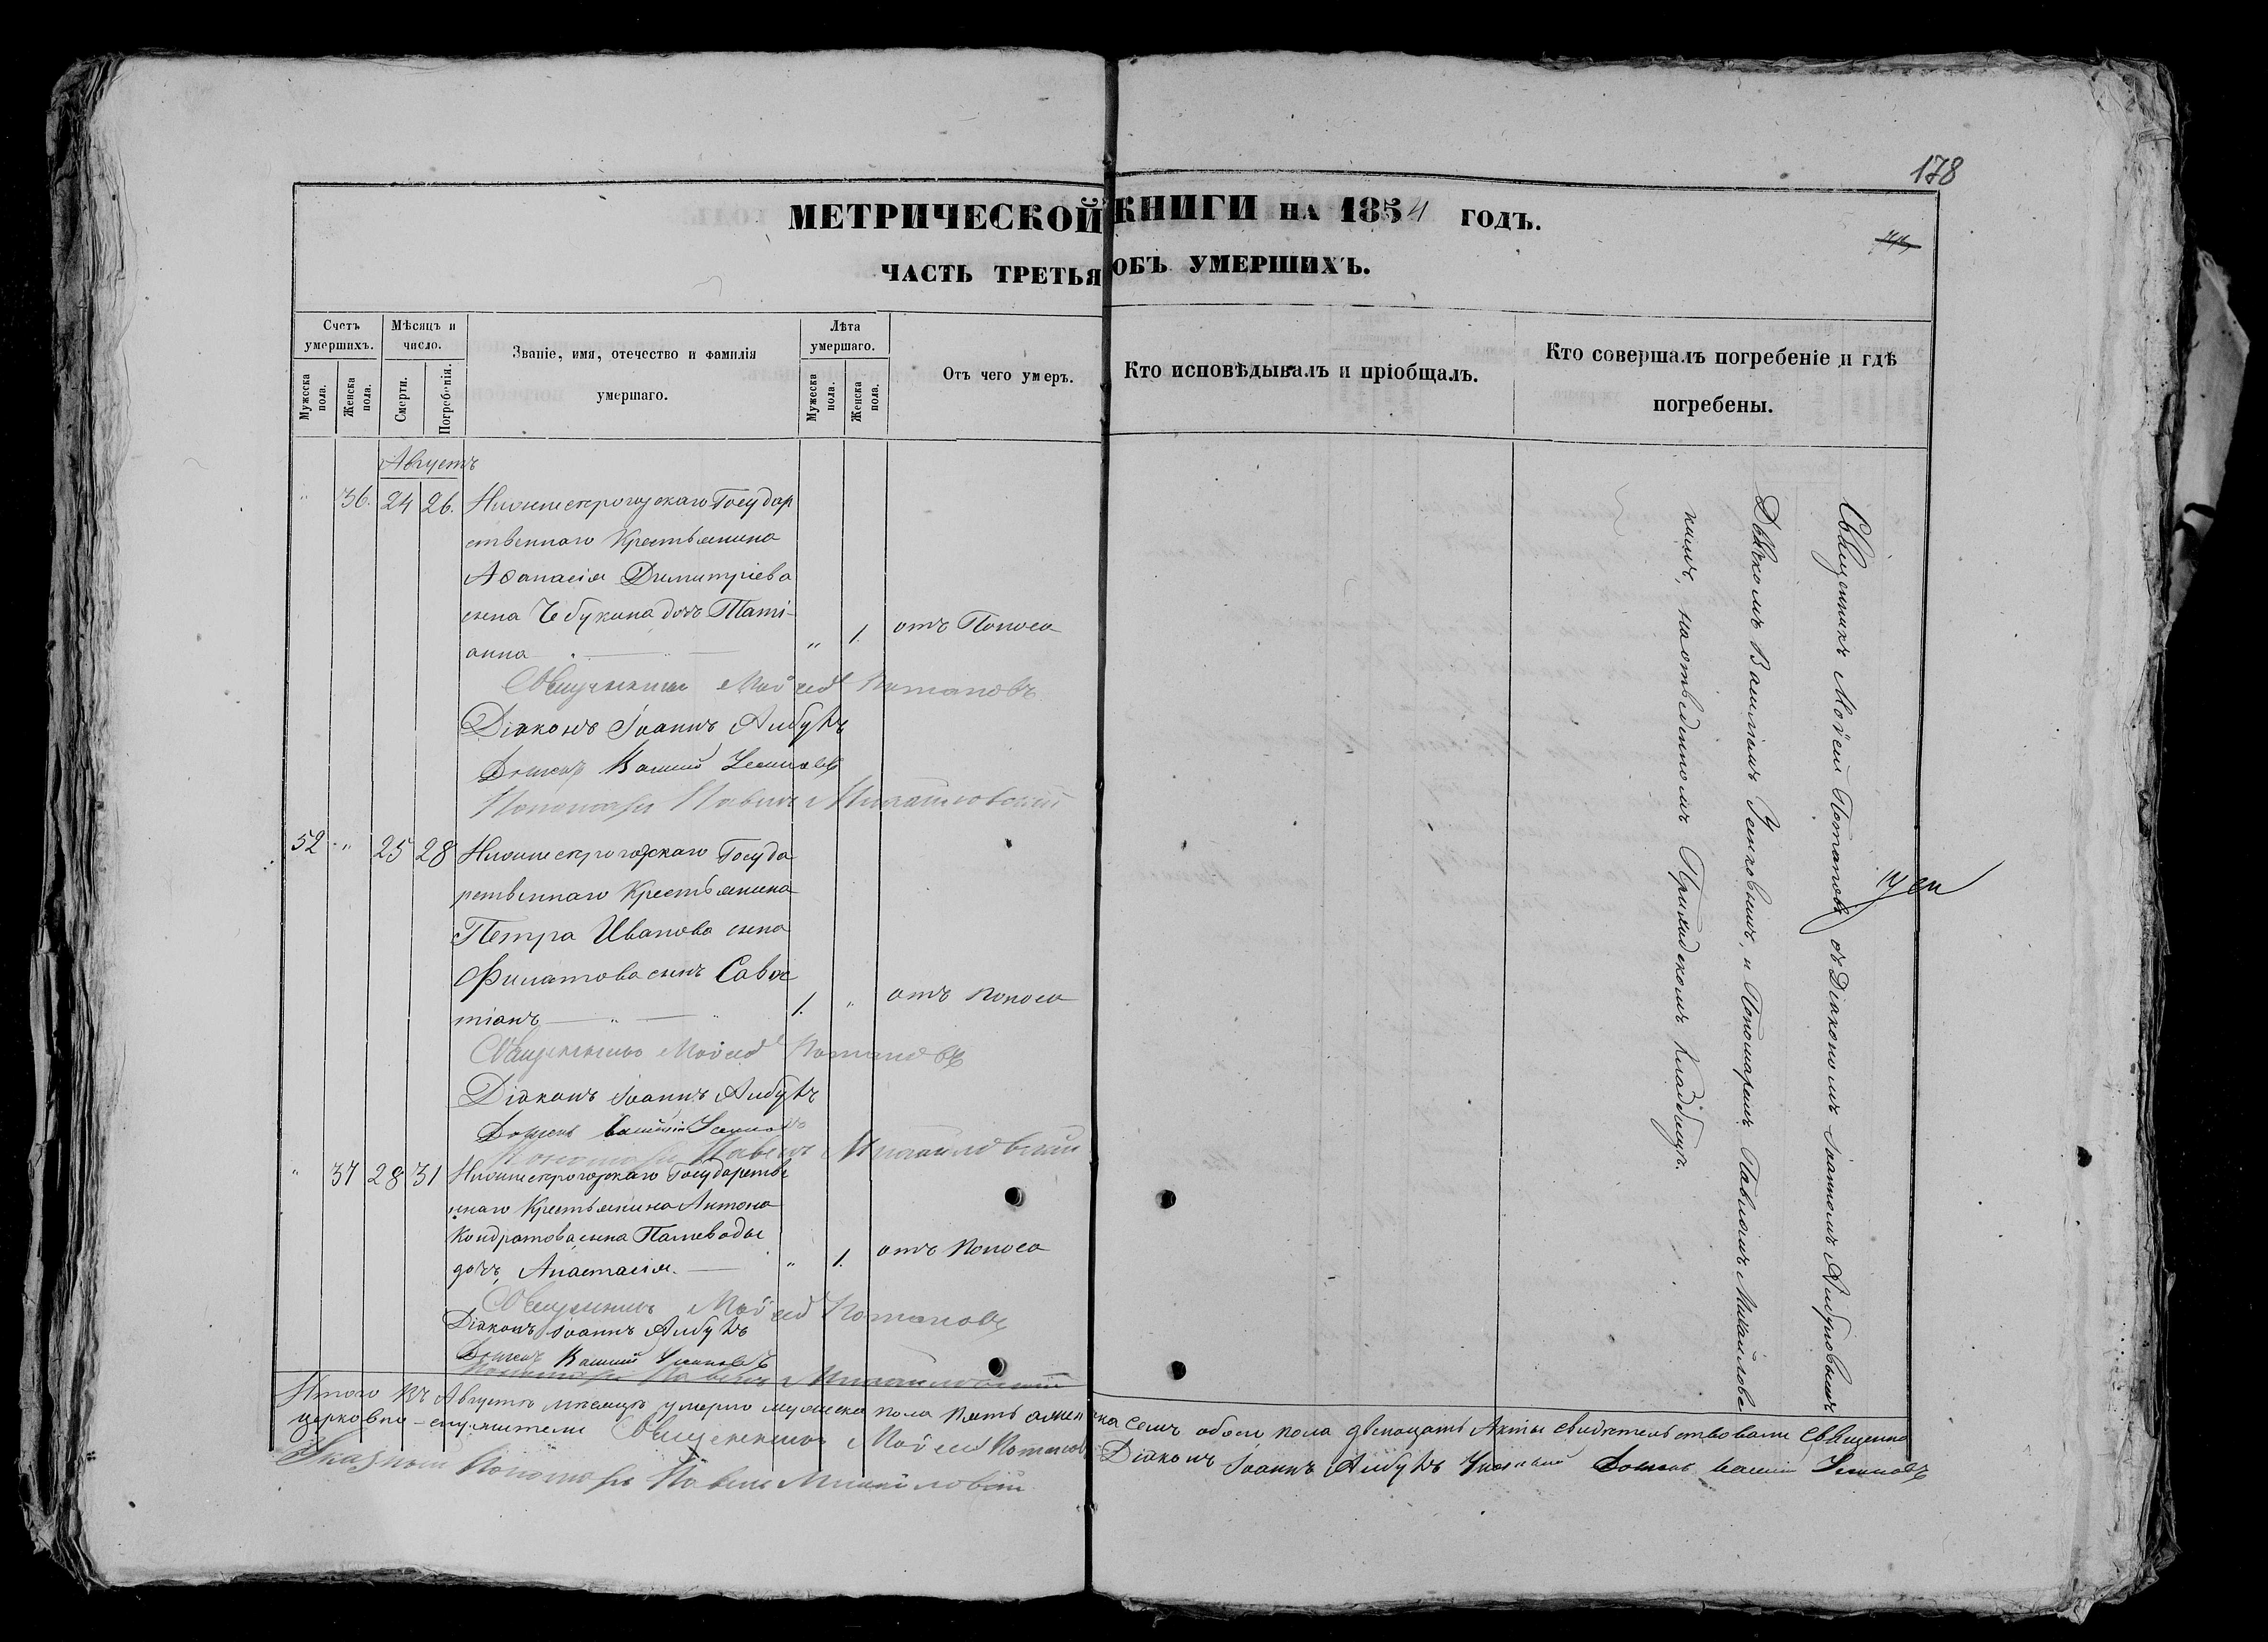 178
МЕТРИЧЕСКОЙ КНИГИ НА 1854 ГОДЪ.
ЧАСТЬ ТРЕТЬЯ ОБЪ УМЕРШИХЪ.
Счетъ умершихъ.
Мужеска пола.
Женска пола.
Мѣсяцъ и число.
Смерти.
Погребенія.
Званіе, имя, отечество и фамилія
умершаго.
Лѣта умершаго.
Мужеска пола.
Женска пола.
Отъ чего умеръ.
Кто исповѣдывалъ и пріобщалъ.
Кто совершалъ погребеніе и гдѣ
погребены.
Августъ
" 36. 24 26. Нижнесерогозскаго Государ
ственнаго Крестьянина
Аѳанасія Димитріева
сына Чебукина дочь Таті-
анна " 1. отъ Поноса
Священникъ Мойсей Потаповъ
Діаконъ Іоаннъ
Дьячекъ Василій
Пономарь Павелъ Михайловскій
52 " 25 28 Нижнесерогозскаго Госуда
рственнаго Крестьянина
Петра Иванова сына
Филатова сынъ Савас
тіанъ 1. " отъ Поноса
Священникъ Мойсей Потаповъ
Діаконъ Іоаннъ
Дьячекъ Василій
Пономарь Павелъ Михайловскій
" 37 28 31 Нижнесерогозскаго Государстве
ннаго Крестьянина Антона
Кондратова сына Палеводы
дочь Анастасія. " 1. отъ Поноса
Священникъ Мойсей Потаповъ
Діаконъ Іоаннъ
Дьячекъ Василій
Пономарь Павелъ Михайловскій
Священникъ Мойсей Потаповъ съ Діакономъ Іоанномъ
Дьячкомъ Василіемъ и Пономаремъ Павломъ Михайловс
кимъ, на отведенномъ Приходскомъ Кладбищѣ.
Итого въ Августѣ мѣсяцѣ умерло мужеска пола пять а женска семь обоего пола двенацать Акты свидѣтельствовали Священно
церковно-служители Священникъ Мойсей Потаповъ Діаконъ Іоаннъ Дьячекъ Василій
Указный Пономарь Павелъ Михайловскій